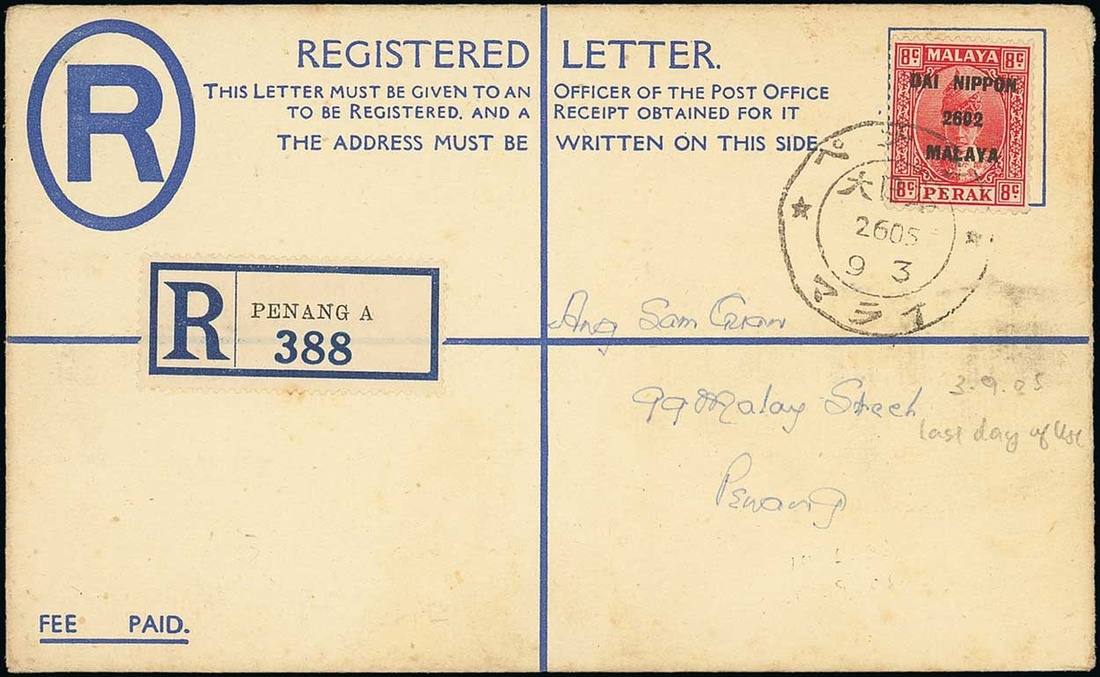 R
REGISTERED LETTER.
THIS LETTER MUST BE GIVEN TO AN OFFICER OF THE POST OFFICE
TO BE REGISTERED, AND A RECEIPT OBTAINED FOR IT
THE ADDRESS MUST BE WRITTEN ON THIS SIDE
8c MALAYA 8c
DAI NIPPON
2602
MALAYA
8c PERAK 8c
ペ
大
2605
9 3
マライ
R
PENANG A
388
Ang Sam
99 Malay Street
Penang
3.9.05
last day of use
FEE PAID.